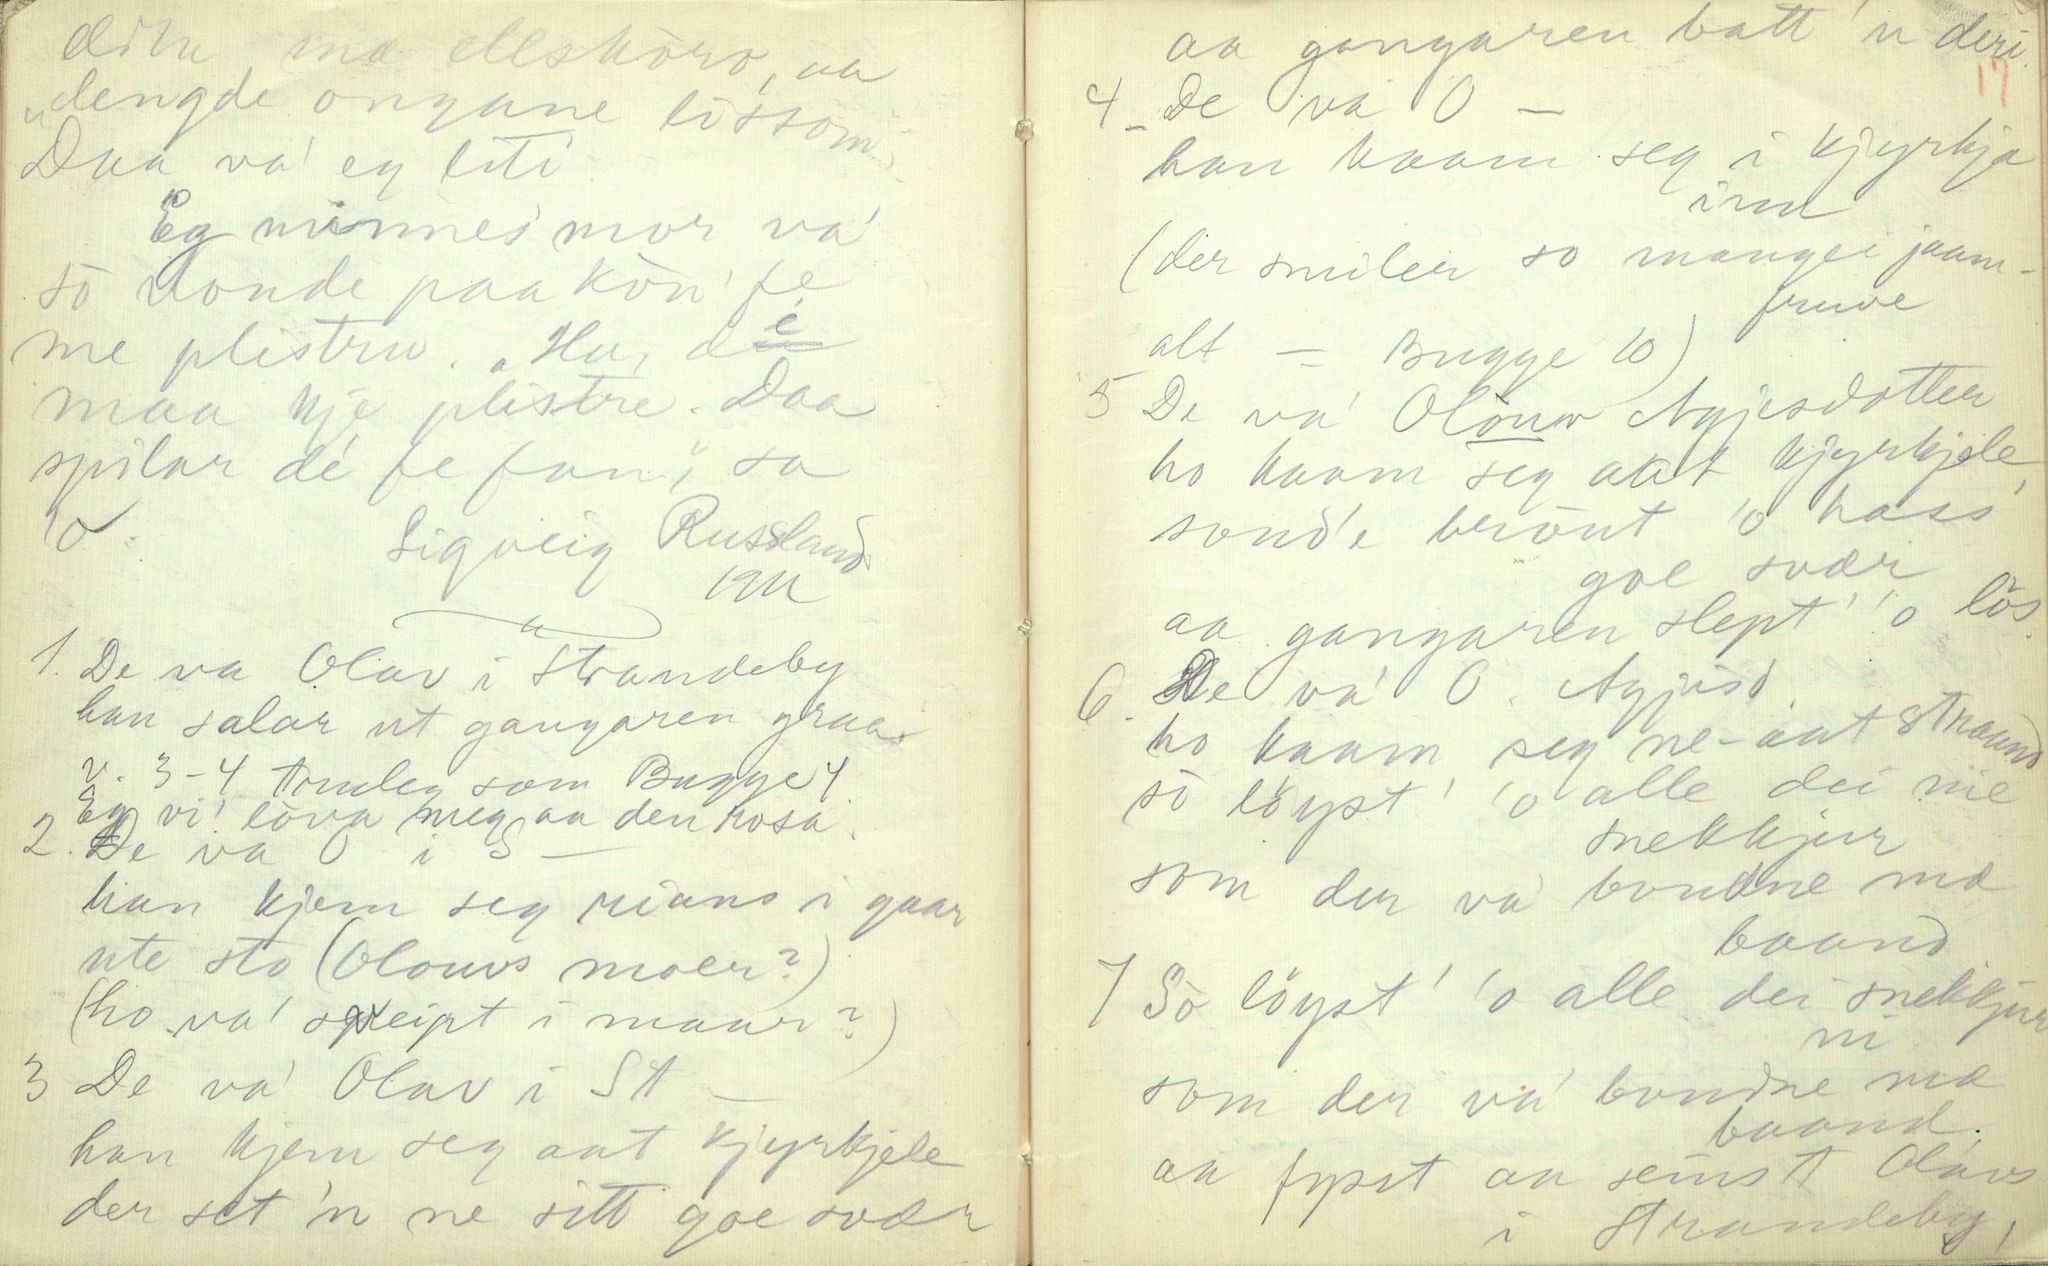 ma eldskōro, aa
dengde ongane lòssom,
Daa va' eg liti
Eg minnes mor va'
sò vonde paa kòn' fe
me plistra. "Hu, dè
maa kje plistre. Daa
spilar dé fe fan", sa
'o.
Sigveig Russland
1911
1. De va Olav i Strandeby
han salar ut gangaren graa
v. 3-4 truleg som Bugge 4
Eg vi' lòva meg aa den rosa.
2. De va O i S —
han kjem seg rians i gaar
ute sto (Olouvs moer?)
(ho va' sveipt i maar?)
3 De va' Olav i St —
han kjem seg aat kjyrkjele
der set 'n ne sitt goe svær
aa gangaren batt 'n deri.
17
4 - De va O —
han kaam seg i kjyrkja
inn
(der smiler so mangei jaam-
fruve
alt — Bugge 10)
5 De va' Olouv Agjesdotter
ho kaam seg aat kjyrkjele,
sond'e brònt 'o hass
goe svær
aa gangaren slept' 'o lòs.
6. De va' O. Agjisd.
ho kaam seg ne-aat straand
sò lòyst' 'o alle dei nie
snekkjur
som der va' bundne mæ
baand
7 Sò lòyst' 'o alle dei snekkjur
ni
som der va' bundne mæ
baand.
aa fyst aa seinst Olavs
i Strandeby,